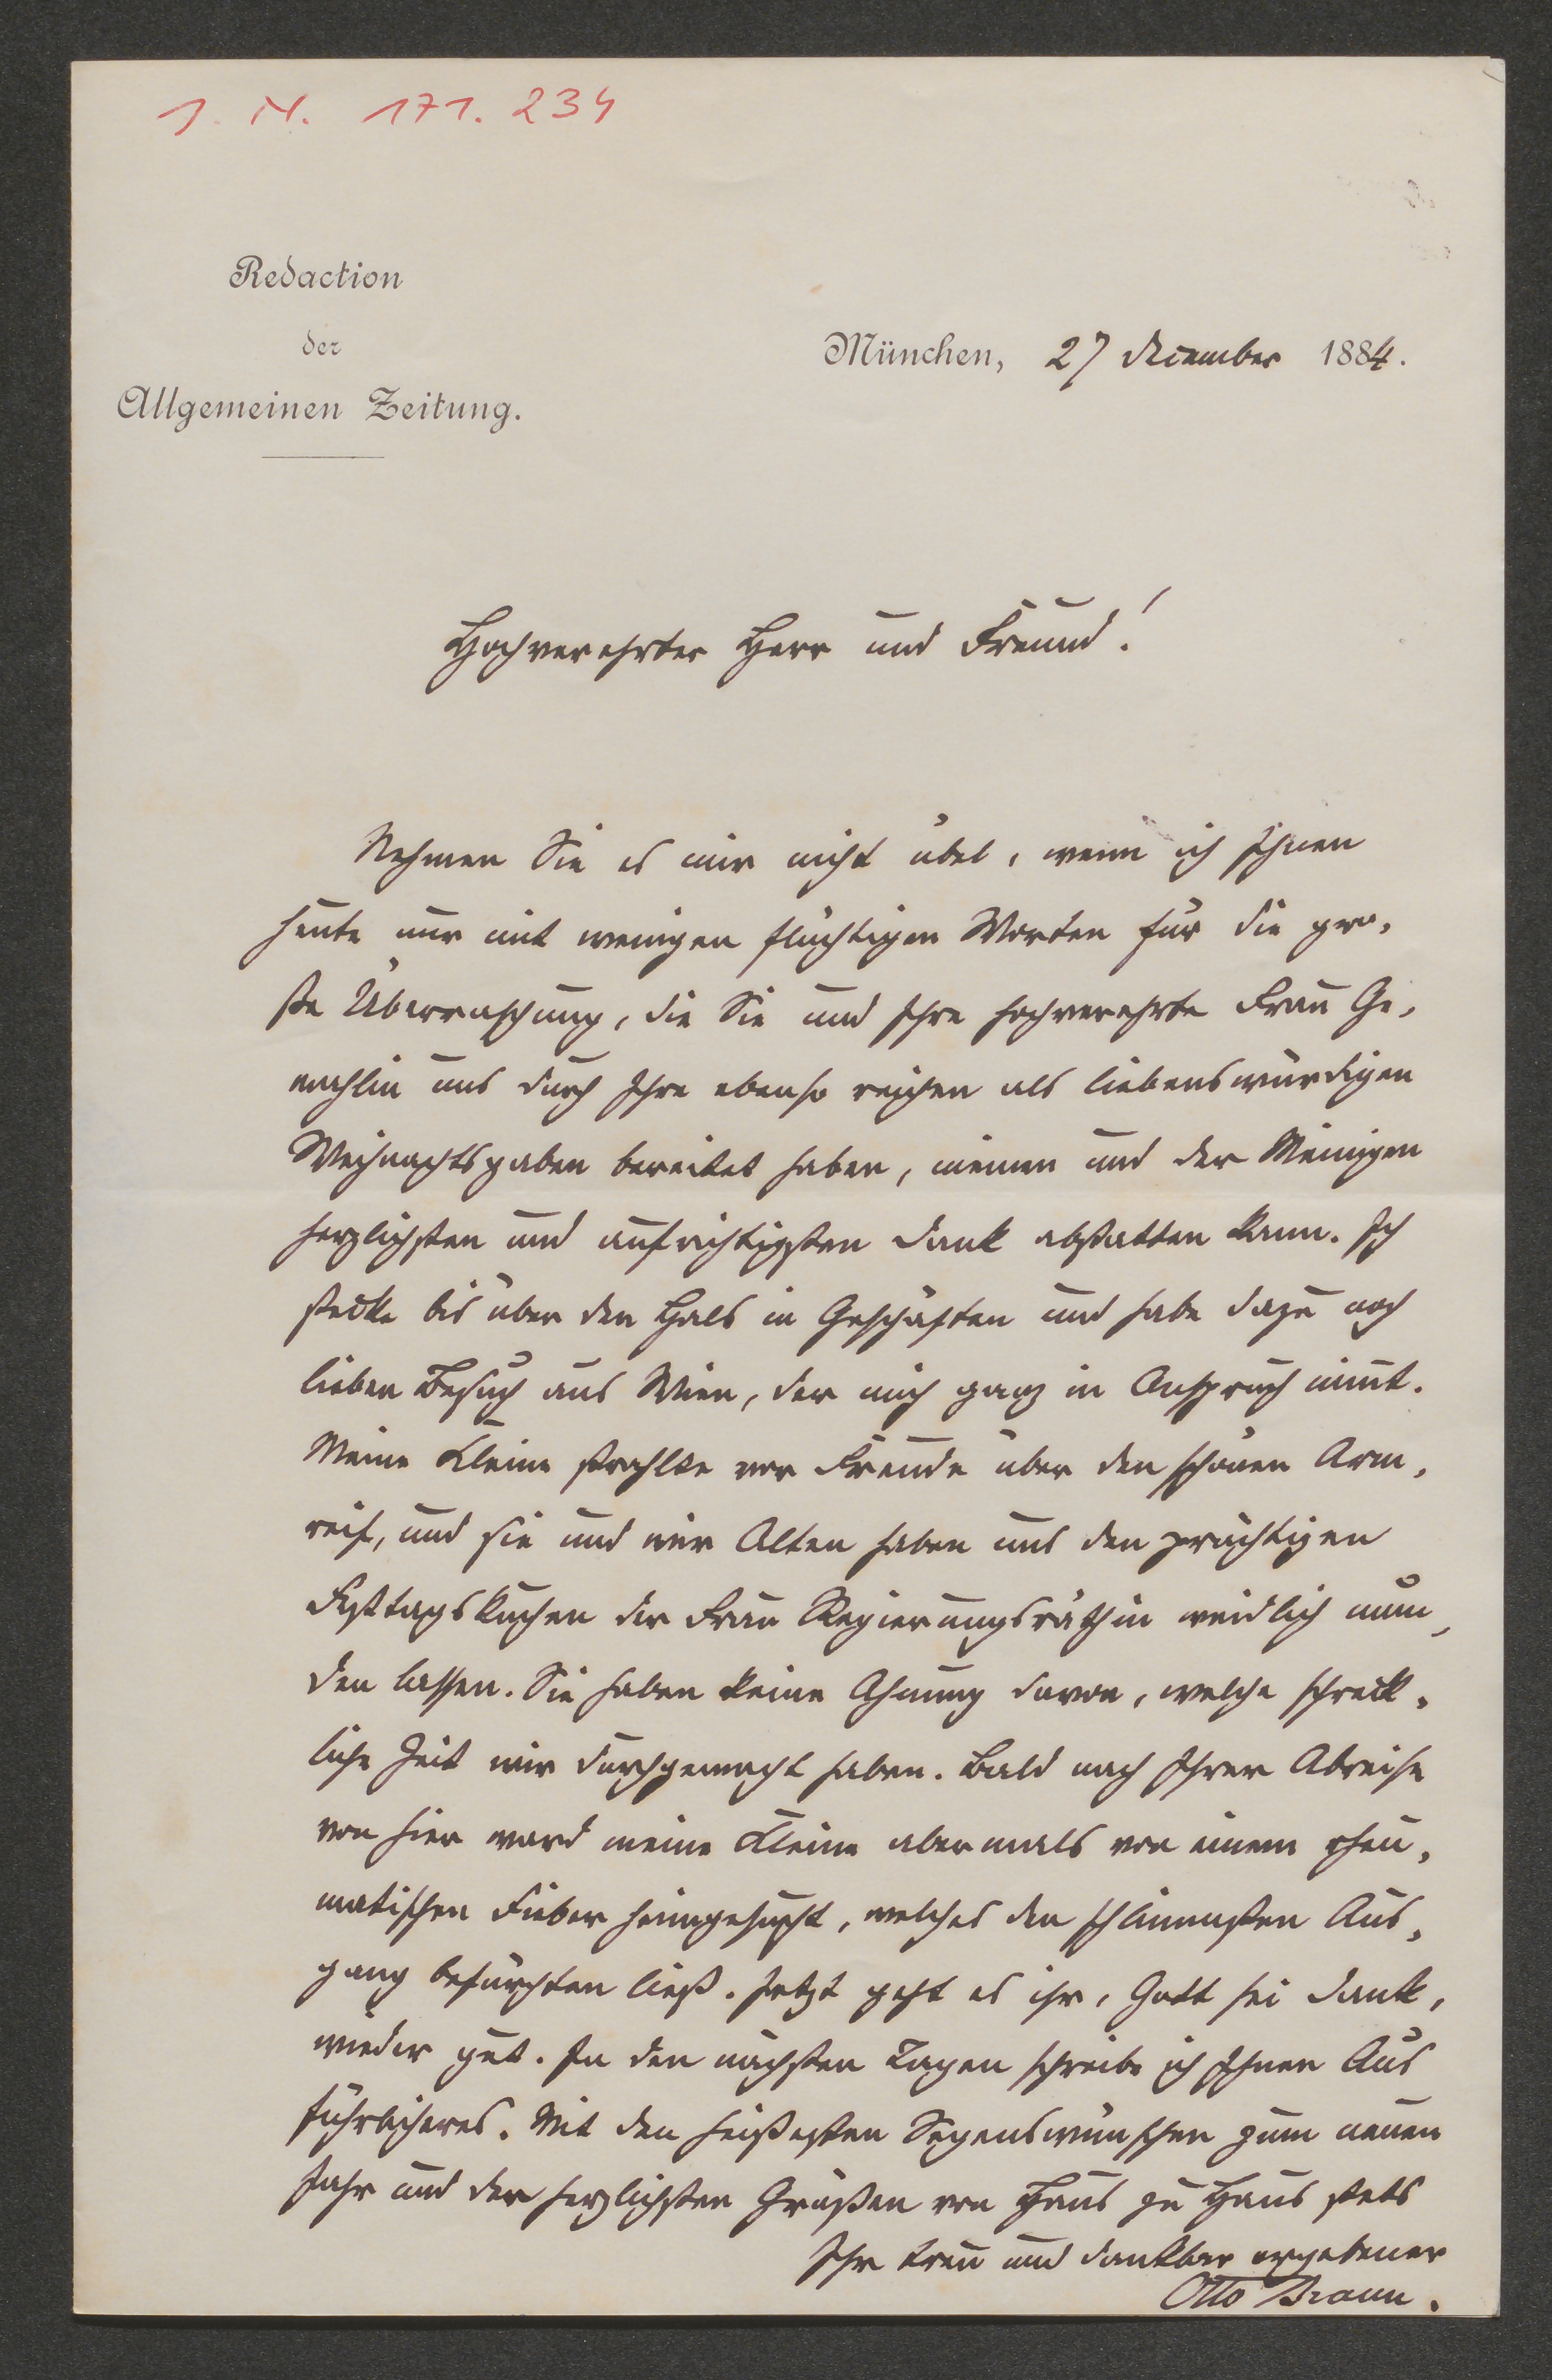 J. N. 171. 234
Redaction
der
Allgemeinen Zeitung.
München, 27 December 1884.
Hochverehrter Herr und Freund!
Nehmen Sie es mir nicht übel, wenn ich Ihnen
heute nur mit wenigen flüchtigen Worten für die gro-
ße Überraschung, die Sie und Ihre hochverehrte Frau Ge-
mahlin uns durch Ihre ebenso reichen als liebenswürdigen
Weihnachtsgaben bereitet haben, meinen und der Meinigen
herzlichsten und aufrichtigsten Dank abstatten kann. Ich
stecke bis über den Hals in Geschäften und habe dazu noch
lieben Besuch aus Wien, der mich ganz in Anspruch nimt.
Meine Kleine strahlte vor Freude über den schönen Arm-
reif, und sie und wir Alten haben uns den prächtigen
Festtagskuchen der Frau Regierungsräthin weidlich mun-
den lassen. Sie haben keine Ahnung davon, welche schreck-
liche Zeit wir durchgemacht haben. Bald nach Ihrer Abreise
von hier ward meine Kleine abermals von einem rheu-
matischen Fieber heimgesucht, welches den schlimmsten Aus-
gang befürchten ließ. Jetzt geht es ihr, Gott sei Dank,
wieder gut. In den nächsten Tagen schreibe ich Ihnen Aus
führlicheres. Mit den heißesten Segenswünschen zum neuen
Jahr und den herzlichsten Grüßen von Haus zu Haus stets
Ihr treu und dankbar ergebener
Otto Braun.